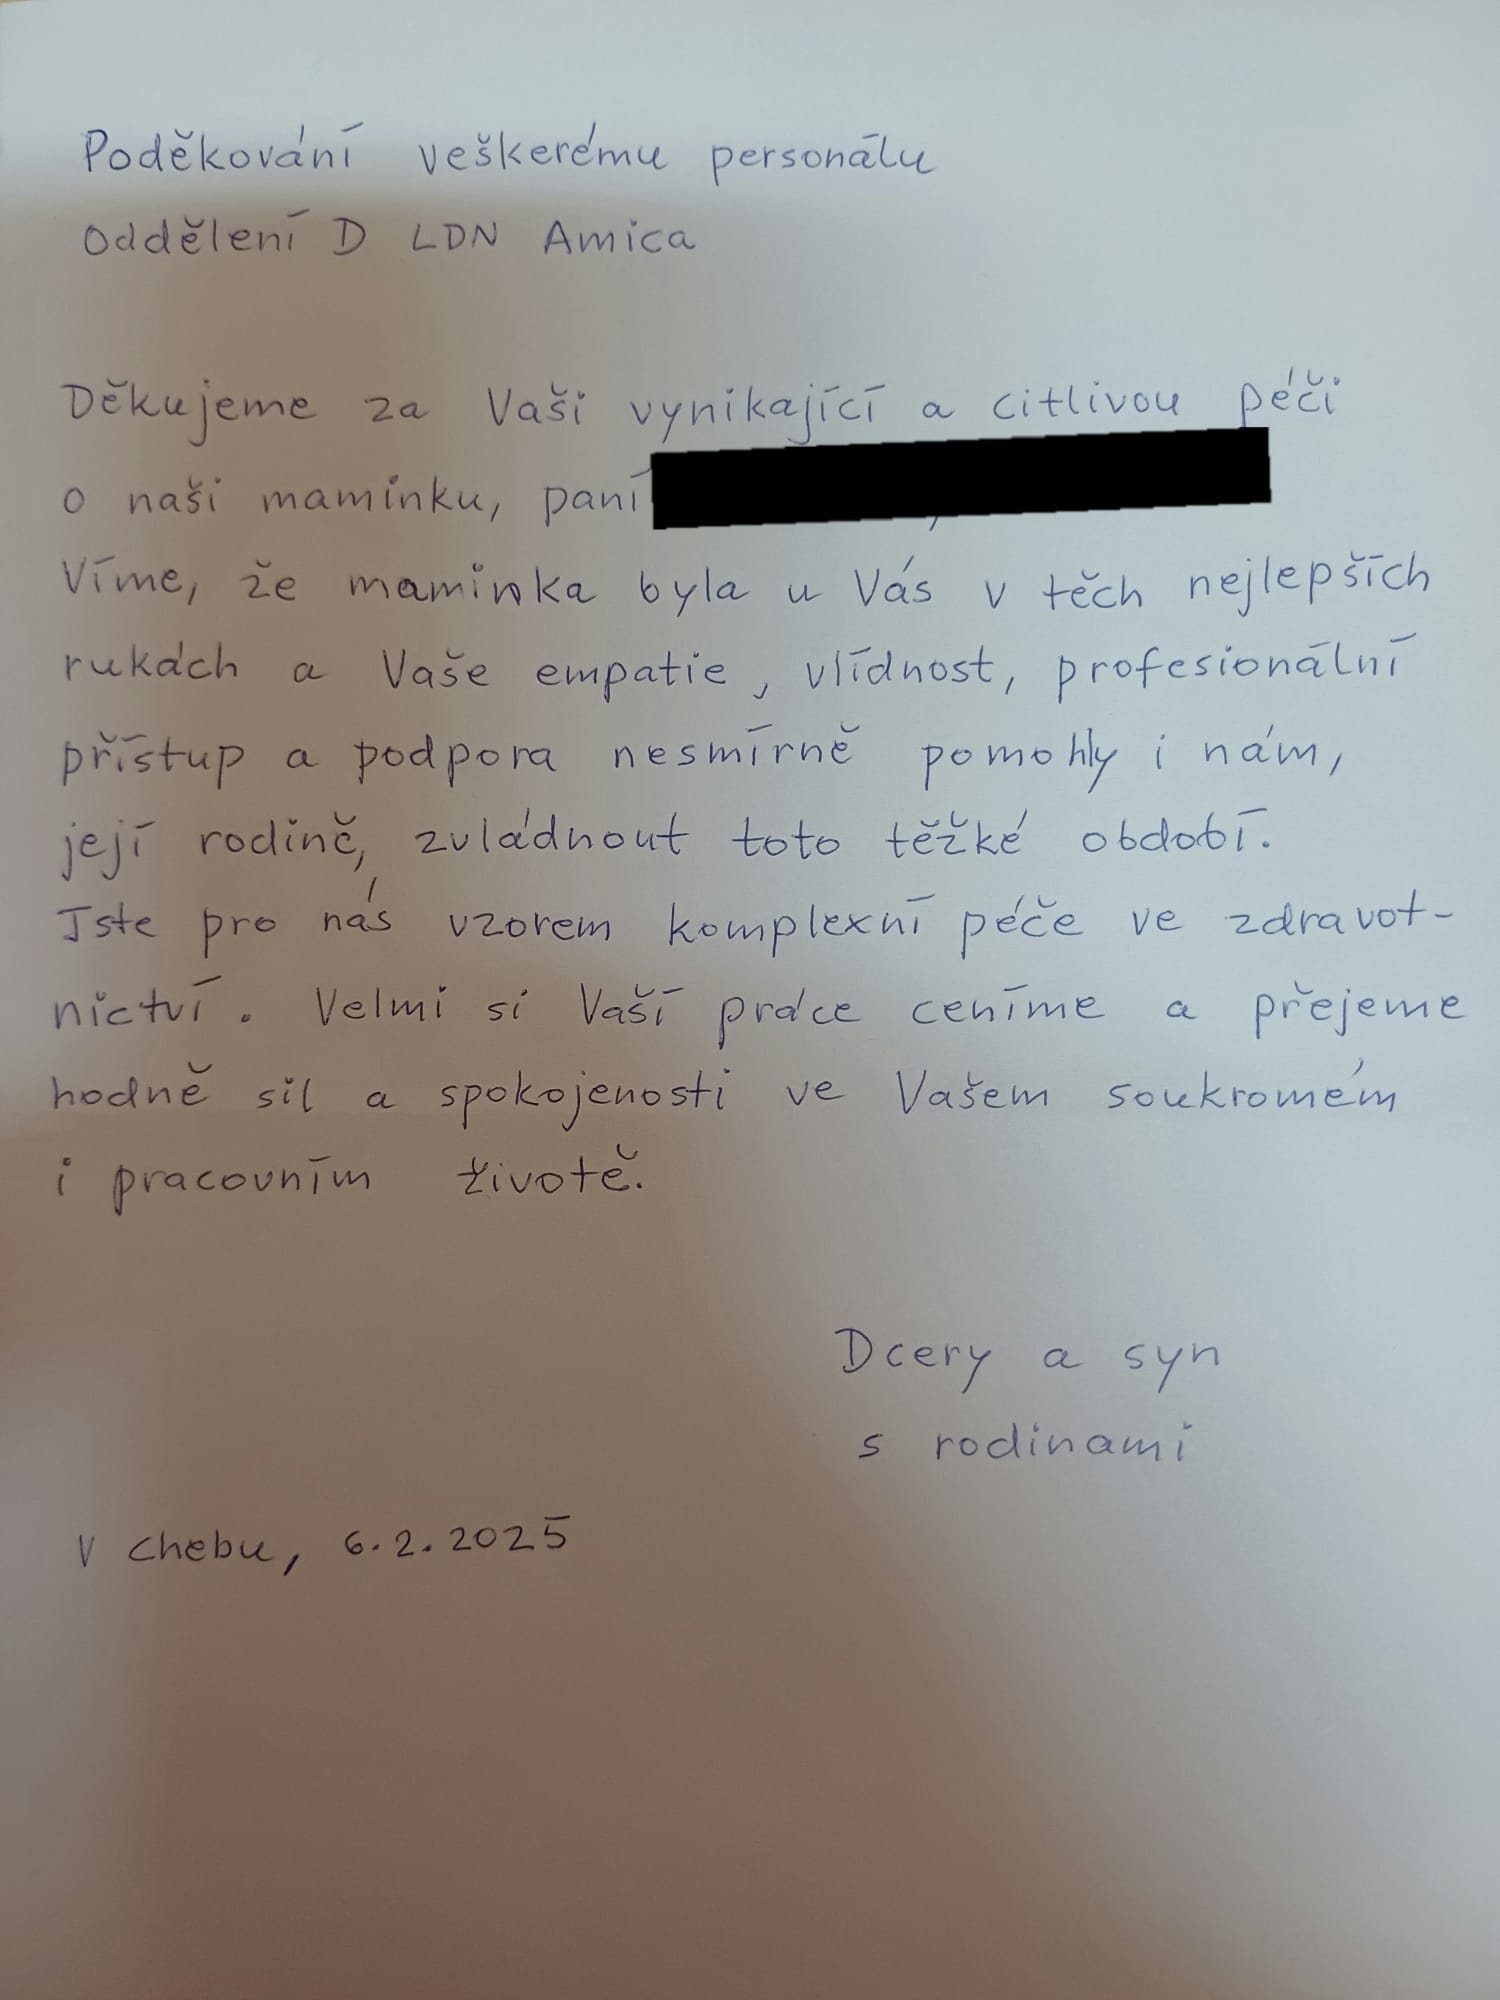 Poděkování veškerému personálu
Oddělení D LDN Amica
Děkujeme za Vaši vynikající a citlivou péči
o naši maminku, paní
Víme, že maminka byla u Vás v těch nejlepších
rukách a Vaše empatie, vlídnost, profesionální
přístup a podpora nesmírně pomohly i nám,
její rodině, zvládnout toto těžké období.
Jste pro nás vzorem komplexní péče ve zdravot-
nictví. Velmi si Vaší práce ceníme a přejeme
hodně sil a spokojenosti ve Vašem soukromém
i pracovním životě.
Dcery a syn
s rodinami
V Chebu, 6.2.2025